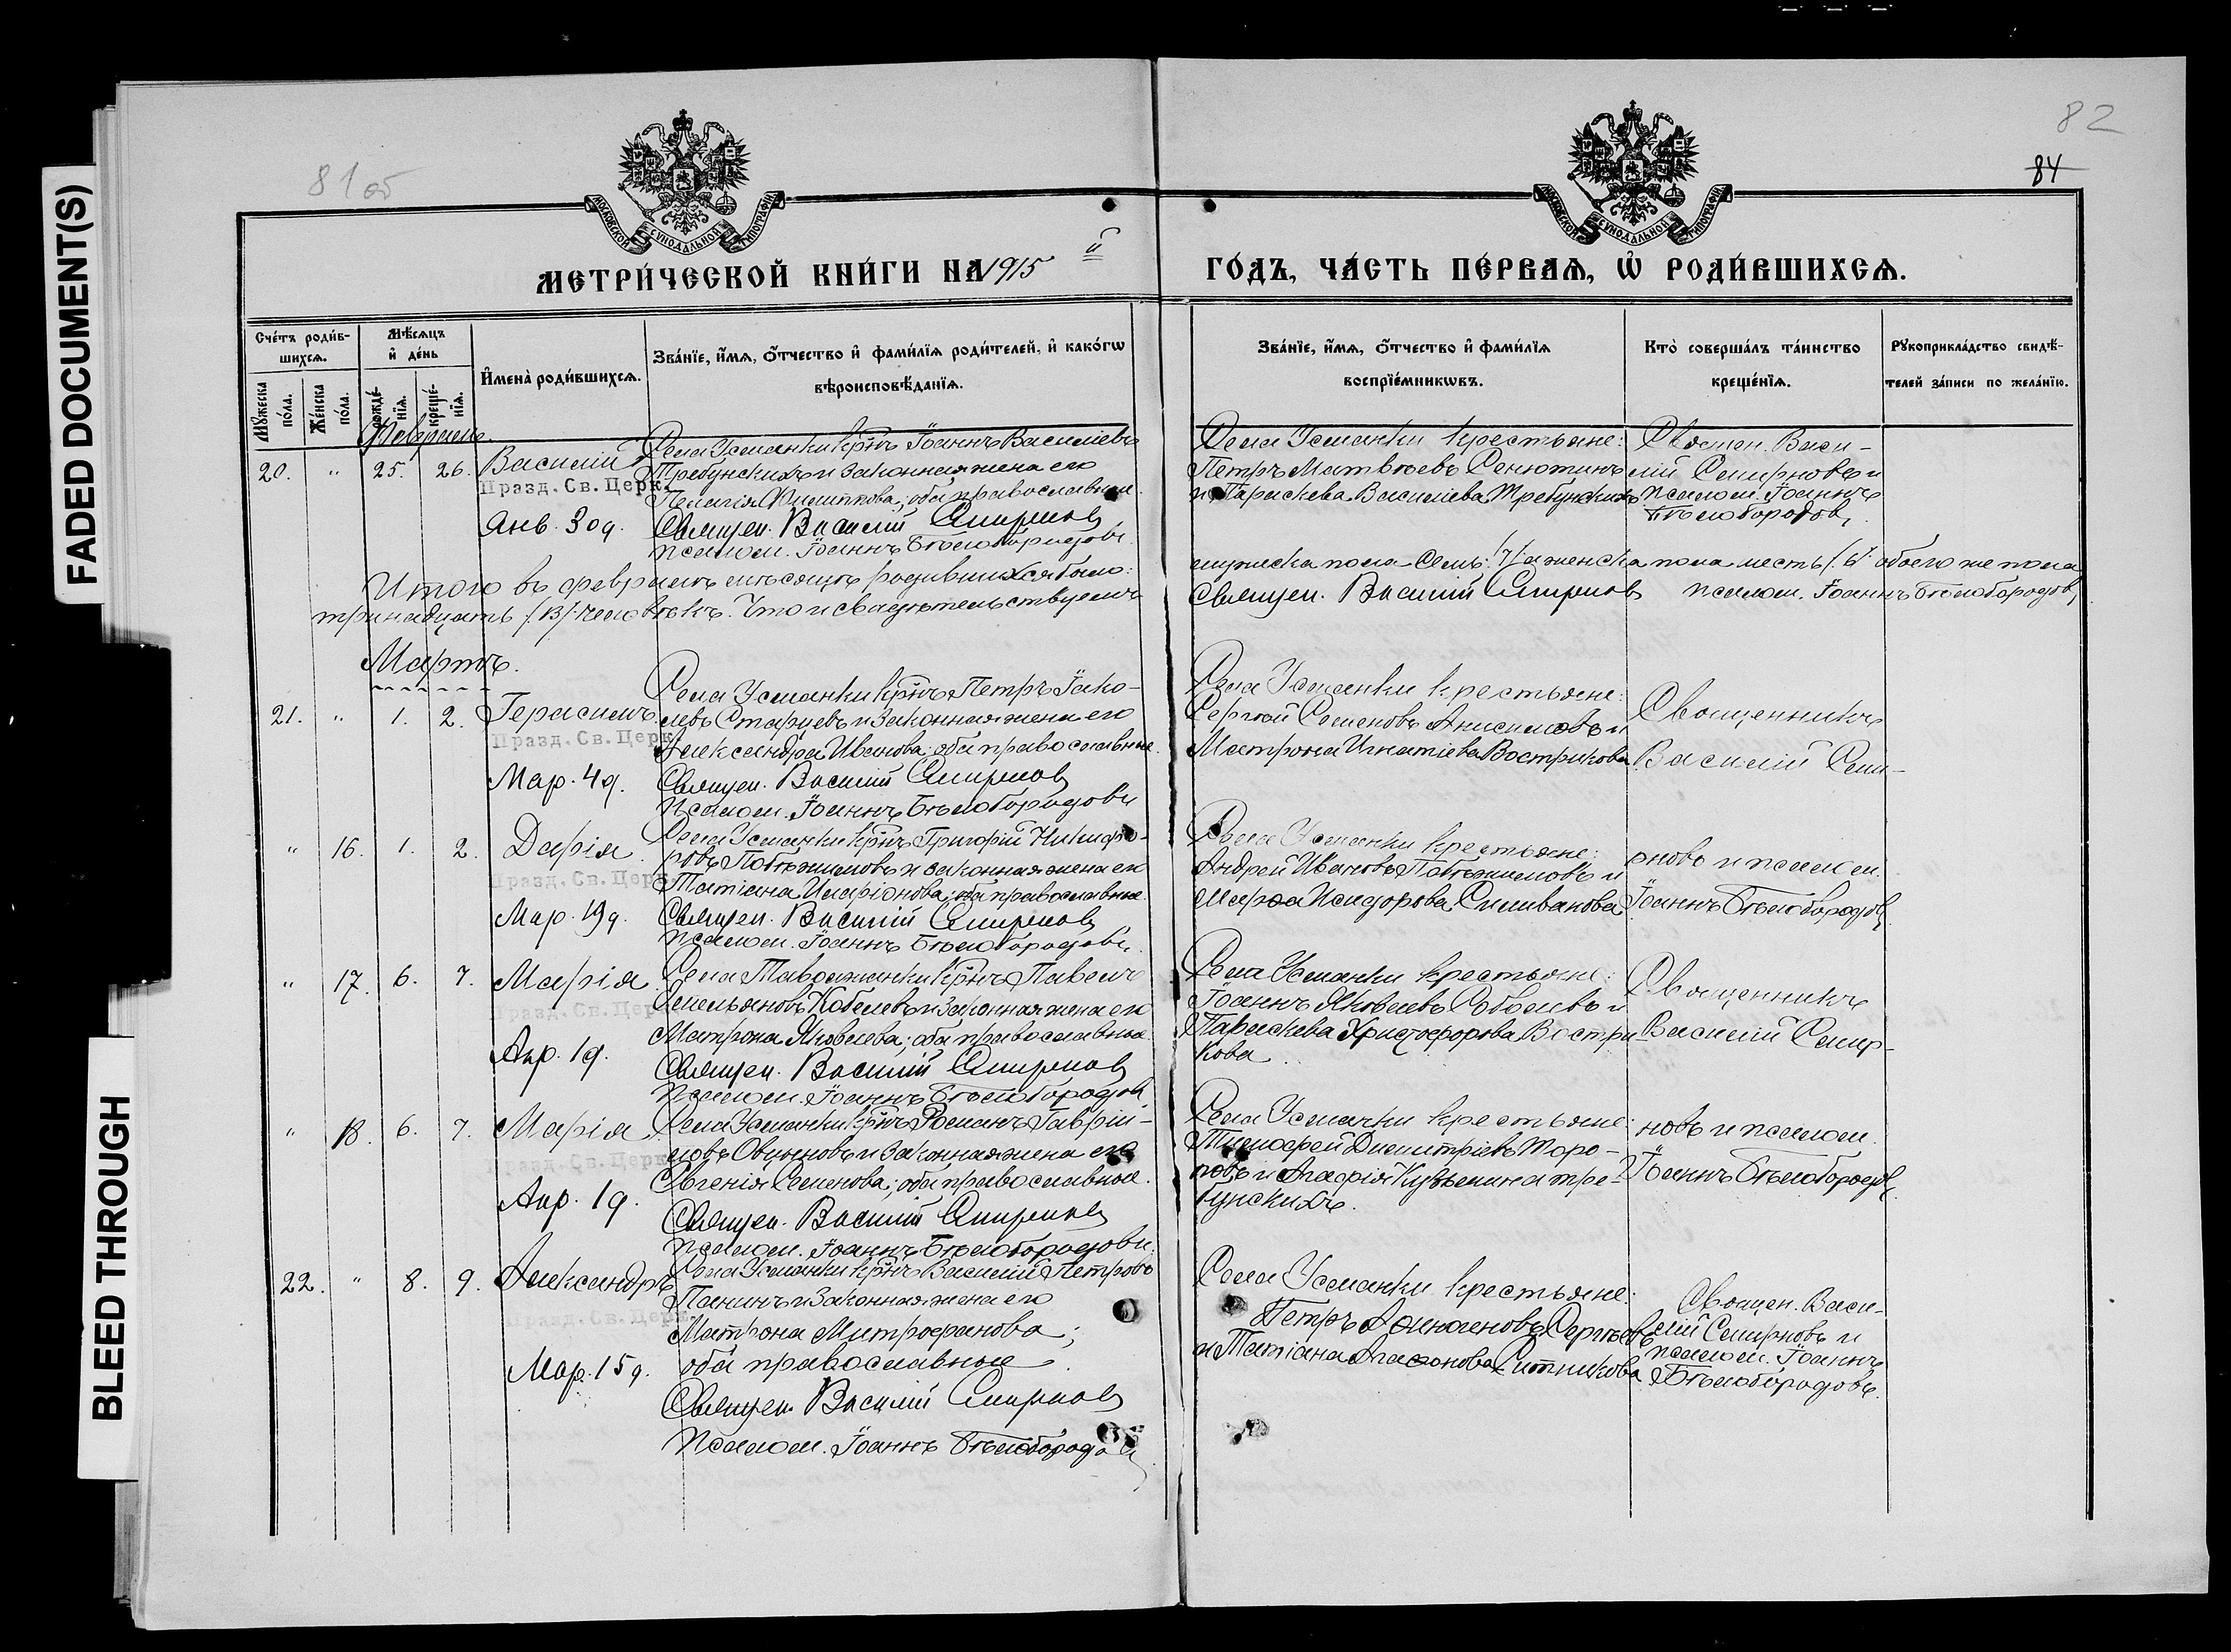 FADED DOCUMENT(S)
BLEED THROUGH
81об
82
84
МОСКОВСКОЙ СѴНОДАЛЬНОЙ ТИПОГРАФІИ
МОСКОВСКОЙ СѴНОДАЛЬНОЙ ТИПОГРАФІИ
МЕТРИ́ЧЕСКОЙ КНИ́ГИ НА 1915 й
ГО́ДЪ, ЧА́СТЬ ПЕ́РВАѦ, Ѡ҆ РОДИ́ВШИХСѦ.
Сче́тъ роди́в-
шихсѧ.
Мꙋ́жеска по́ла.
Же́нска по́ла.
Мѣ́сѧцъ
и҆ де́нь
рожде́-
нїѧ.
креще́-
нїѧ.
И҆мена̀ роди́вшихсѧ.
Зва́нїе, и҆́мѧ, ѻ҆́тчество и҆ фами́лїѧ роди́телей, и҆ како́гѡ
вѣроисповѣ́данїѧ.
Зва́нїе, и҆́мѧ, ѻ҆́тчество и҆ фами́лїѧ
воспрїе́мникѡвъ.
Кто̀ соверша́лъ та́инство
креще́нїѧ.
Рꙋкоприкла́дство свидѣ́-
телей за́писи по жела́нїю.
Февраль.
20. " 25. 26. Василій
Празд. Св. Церк.
Янв. 30 д.
Села Усманки крнъ Іоаннъ Васильевъ
Требунскихъ и законная жена его
Пелагія Филиппова; оба православные.
Священ. Василій Смирновъ
псалом. Іоаннъ Бѣлобородовъ.
Села Усманки крестьяне:
Петръ Матвѣевъ Сенютинъ
и Параскева Василева Требунскихъ
Священ. Васи-
лій Смирновъ и
псалом. Іоаннъ
Бѣлобородовъ.
Итого въ февралѣ мѣсяцѣ родившихся было: мужеска пола семь /7/ а женска пола шесть /6/ обоего же пола
тринадцать /13/ человѣкъ. Что и свидѣтельствуемъ Священ. Василій Смирновъ псалом. Іоаннъ Бѣлобородовъ
Мартъ.
21. " 1. 2. Герасимъ.
Празд. Св. Церк.
Мар. 4 д.
Села Усманки крнъ Петръ Іако-
левъ Старцевъ и законная жена его
Александра Иванова; оба православные.
Священ. Василій Смирновъ
Псалом. Іоаннъ Бѣлобородовъ
Села Усманки крестьяне:
Сергѣй Семеновъ Анисимовъ и
Матрона Игнатіева Вострикова
Священникъ
Василій Смир-
" 16. 1. 2. Дарія
Празд. Св. Церк.
Мар. 19 д.
Села Усманки крнъ Григорій Никифо-
ровъ Побѣжимовъ и законная жена его
Татіана Иларіонова; оба православные.
Священ. Василій Смирновъ
псалом. Іоаннъ Бѣлобородовъ.
Села Усманки крестьяне:
Андрей Ивановъ Побѣжимовъ и
Марфа Исидорова Силиванова
рновъ и псалом.
Іоаннъ Бѣлобородовъ
" 17. 6. 7. Марія
Празд. Св. Церк.
Апр. 1 д.
Села Таволжанки крнъ Павелъ
Емельяновъ Кобелевъ и законная жена его
Матрона Яковлева; оба православные.
Священ. Василій Смирновъ
псалом. Іоаннъ Бѣлобородовъ
Села Усманки крестьяне:
Іоаннъ Яковлевъ Соболевъ и
Параскева Христофорова Востри-
кова
Священникъ
Василій Смир-
" 18. 6. 7. Марія
Празд. Св. Церк.
Апр. 1 д.
Села Усманки крнъ Романъ Гаврій-
ловъ Овцыновъ и законная жена его
Евгенія Семенова; оба православные.
Священ. Василій Смирновъ
псалом. Іоаннъ Бѣлобородовъ.
Села Усманки крестьяне:
Тимофей Димитріевъ Торо-
повъ и Агафія Кузьмина Тре-
бунскихъ.
новъ и псалом.
Іоаннъ Бѣлобородовъ
22. " 8. 9. Александръ
Празд. Св. Церк.
Мар. 15 д.
Села Усманки крнъ Василій Петровъ
Панинъ и законная жена его
Матрона Митрофанова;
оба православные.
Священ. Василій Смирновъ
Псалом. Іоаннъ Бѣлобородовъ
Села Усманки крестьяне:
Петръ Сергѣевъ
и Татіана Агафонова Ситникова
Священ. Васи-
лій Смирновъ и
псалом. Іоаннъ
Бѣлобородовъ.